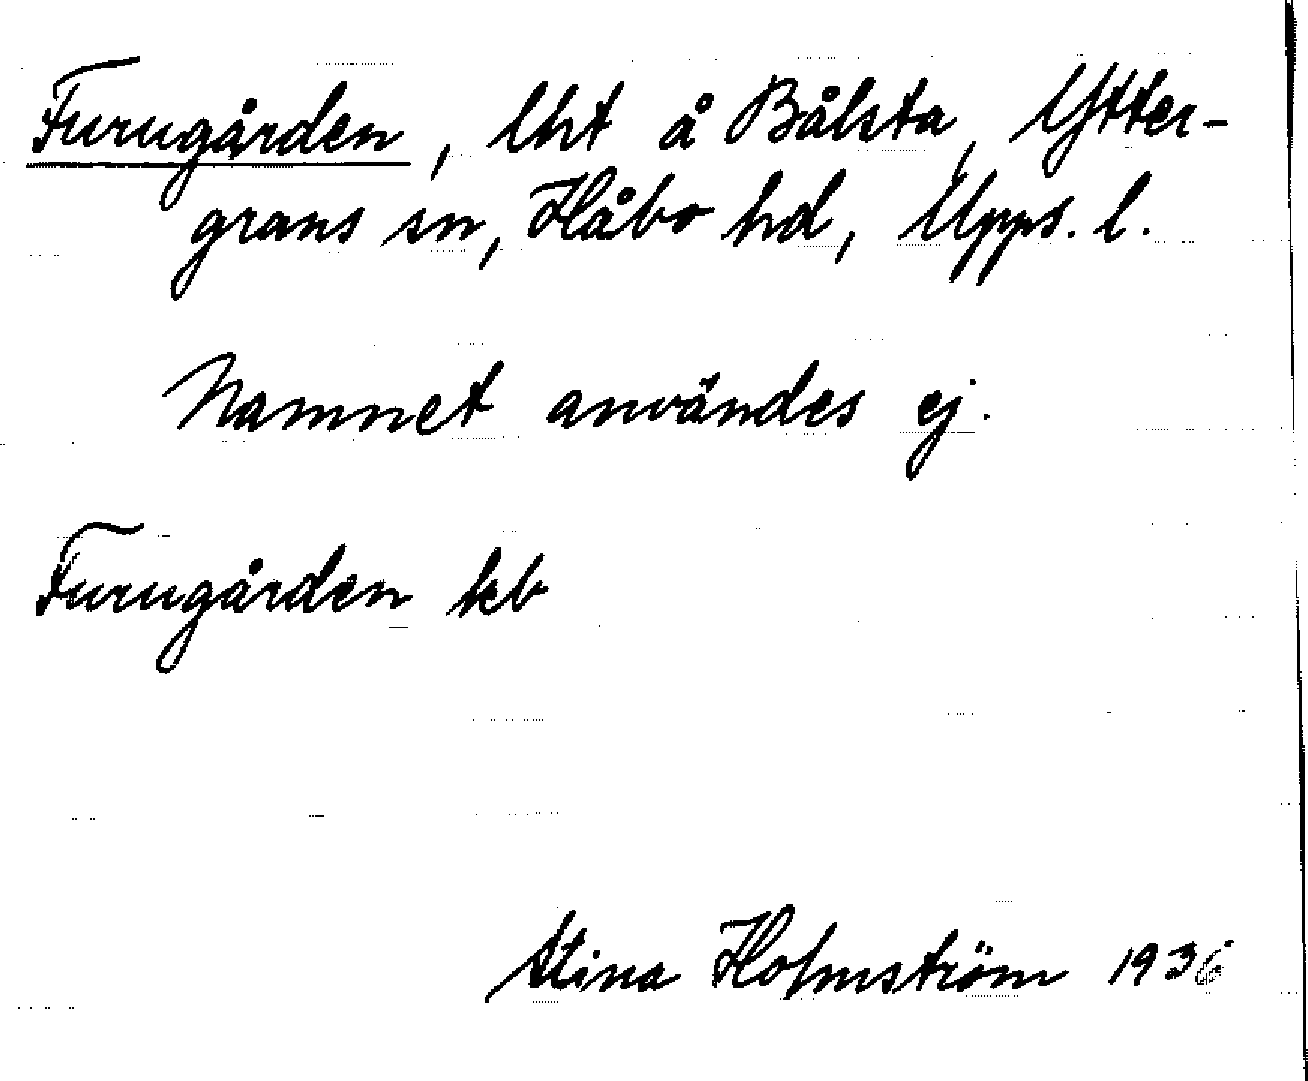 Furugården, lht å Bålsta, Ytter-
grans sn, Håbo hd, Upps. l.
Namnet användes ej.
Furugården kb
Stina Holmström 1936